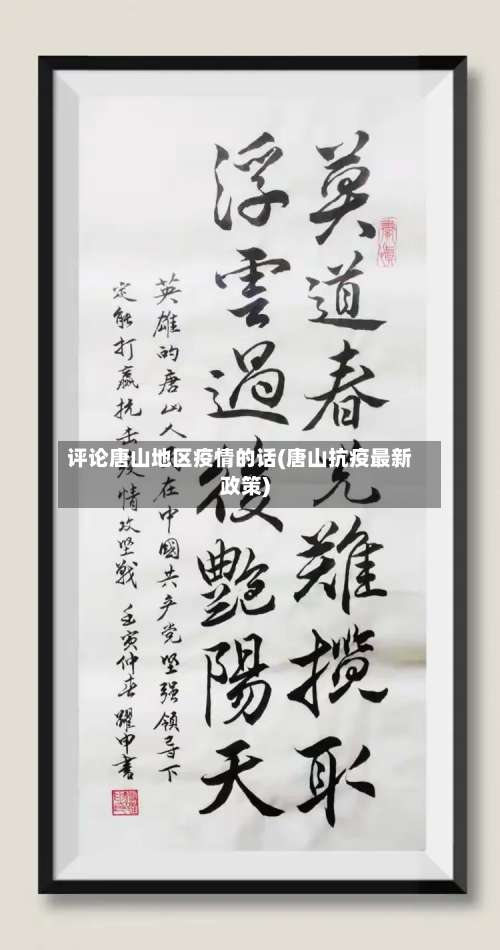 莫道春光難攬取
浮雲過後艷陽天
英雄的唐山人在中國共产党坚强领导下
定能打赢抗击疫情攻坚戰 壬寅仲春 躍申書
评论唐山地区疫情的话(唐山抗疫最新
政策)